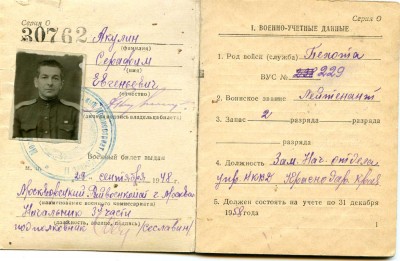 Серия О
30762
Якулин
(фамилия)
Серафим
(имя)
Евгеневич
(отчество)
(личная подпись владельца билета)
Военный билет выдан
27 сентября 1948
г. Москва
(наименование военного комиссариата)
Начальник 3й части
подполковник
(должность, звание, подпись)
Серия О
I. ВОЕННО-УЧЕТНЫЕ ДАННЫЕ
1. Род войск (служба) Пехота
ВУС № 229
2. Воинское звание Лейтенант
3. Запас 2 разряда разряда
разряда
4. Должность Зам. Нач. отдела
упр. НКВД Краснодар. Края
5. Должен состоять на учете до 31 декабря
1958 года